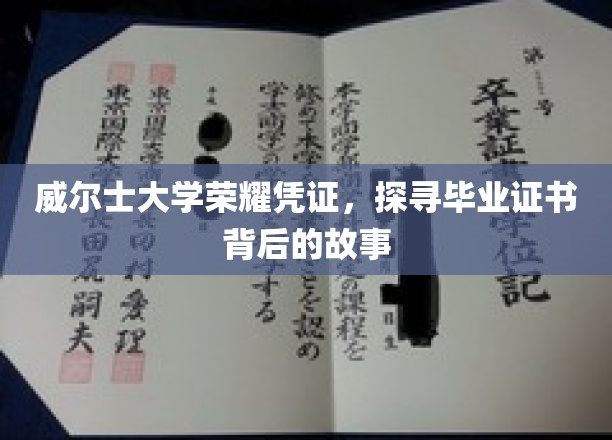 威尔士大学荣耀凭证，探寻毕业证书
背后的故事
第 号
卒業証 学位記
本学商学部 定の課程を
修めて本学 ことを認め
学士(商学)の する
平成
東京国際大学 田村愛理
東京国際大学 長田尻嗣夫